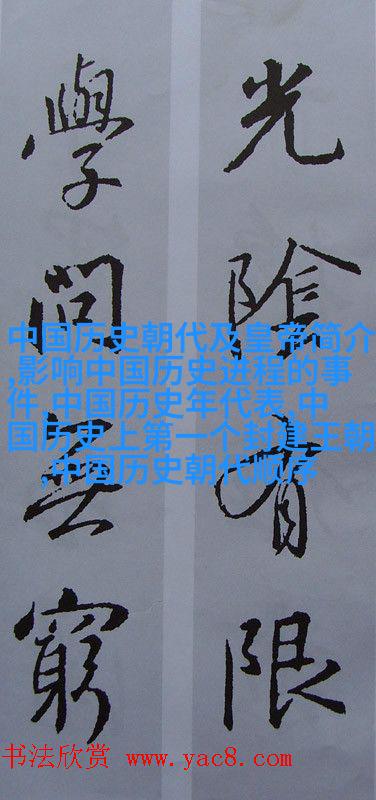 光陰有限
學問無窮
中国历史朝代及皇帝简介
,影响中国历史进程的事
件,中国历史年代表,中
国历史上第一个封建王朝
,中国历史朝代顺序
书法欣赏 www.yac8.com